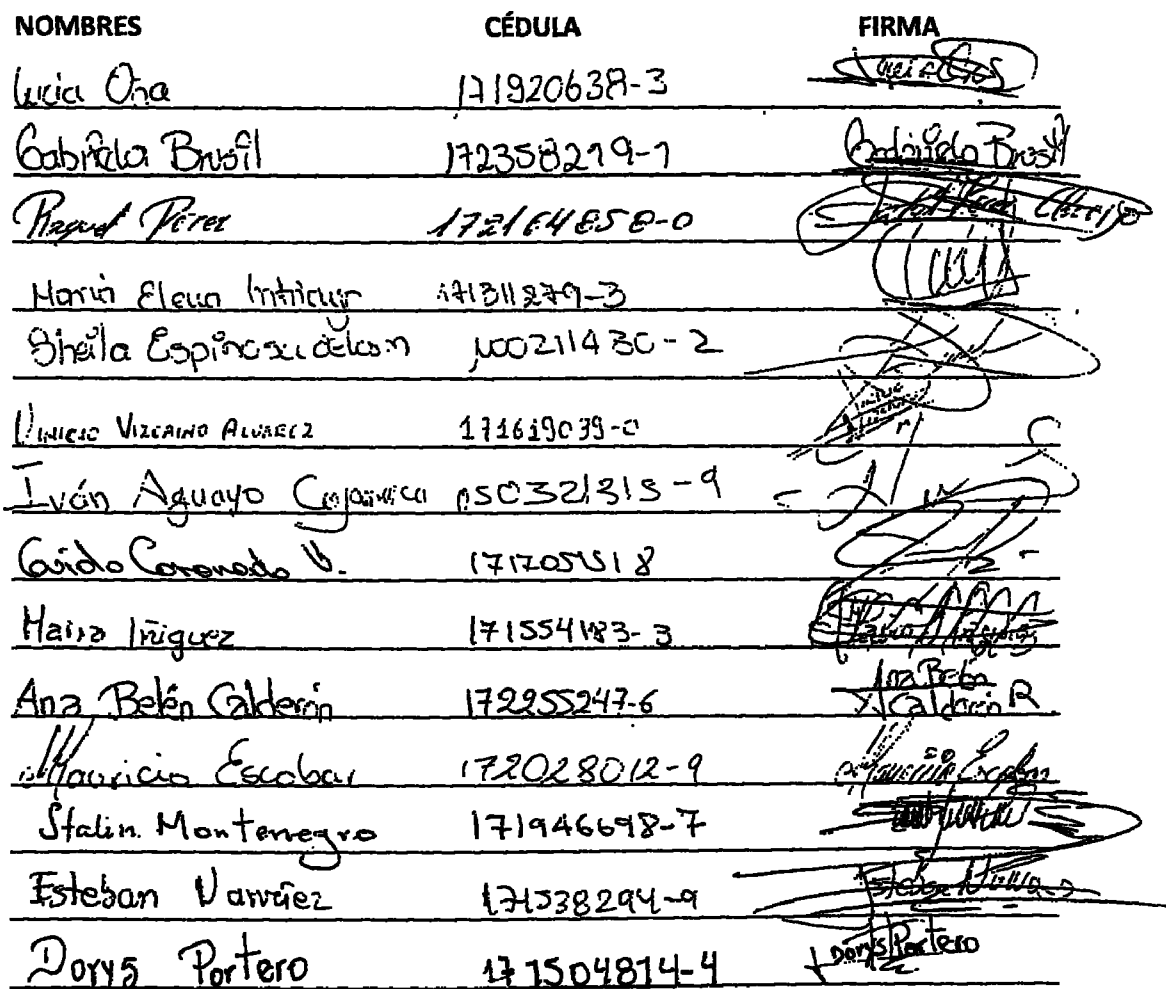 NOMBRES CÉDULA FIRMA
Lucia Oña 171920638-3
Gabriela Brusil 172358219-1 Gabriela Brusil
Raquel Pérez 172164858-0
Maria Elena 171311279-3
Sheila Espinosa 100211430-2
Vinicio Vizcaino Alvarez 171619039-0
Iván Aguayo 050321315-9
Guido Coronado V.
Maira Iñiguez 171554183-3
Ana Belén Calderón 172255247-6 Ana Belén Calderón R.
Mauricio Escobar 172028012-9 Mauricio Escobar
Stalin Montenegro 171946698-7
Esteban Narváez 171538294-9 Esteban
Dorys Portero 171504814-4 Dorys Portero